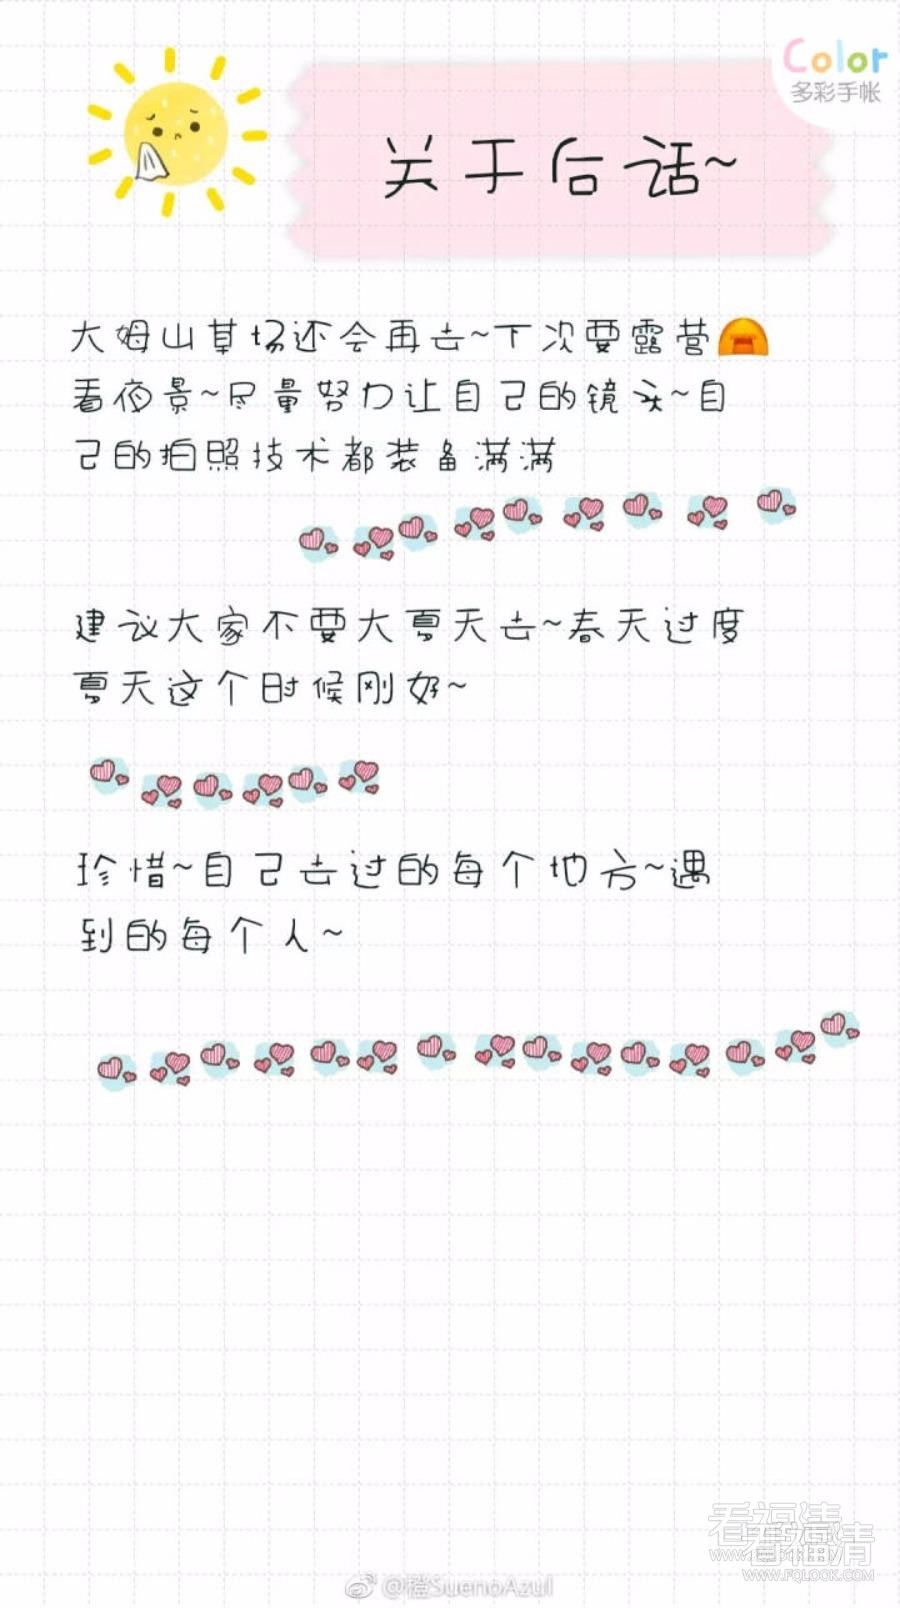 Color
多彩手帐
关于后话~
大姆山草场还会再去~下次要露营
看夜景~尽量努力让自己的镜头~自
己的拍照技术都装备满满
建议大家不要大夏天去~春天过度
夏天这个时候刚好~
珍惜~自己去过的每个地方~遇
到的每个人~
看福清
WWW.
看福清
WWW.FQLOOK.COM
@橙SuenoAzul